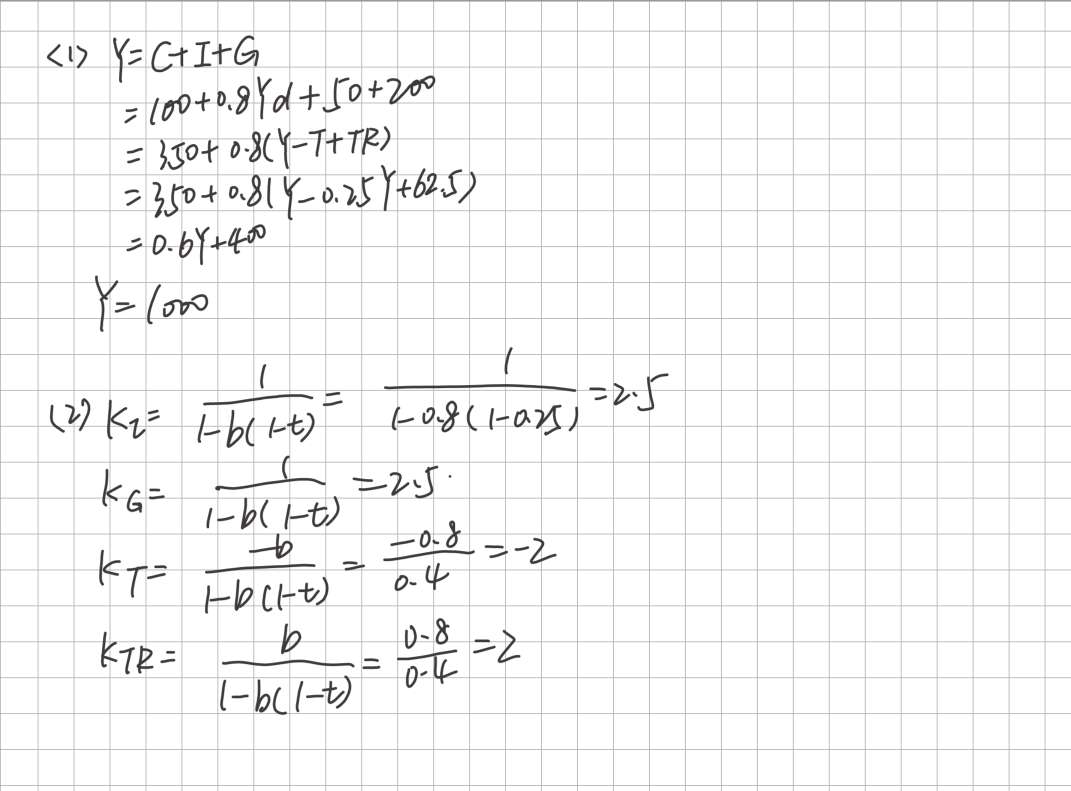 <1> Y=C+I+G
=100+0.8Yd+50+200
=350+0.8(Y-T+TR)
=350+0.8(Y-0.25Y+62.5)
=0.6Y+400
Y=1000
(2) K_I= 1/(1-b(1-t)) = 1/(1-0.8(1-0.25)) =2.5
K_G= 1/(1-b(1-t)) =2.5
K_T= -b/(1-b(1-t)) = -0.8/0.4 =-2
K_TR= b/(1-b(1-t)) = 0.8/0.4 =2